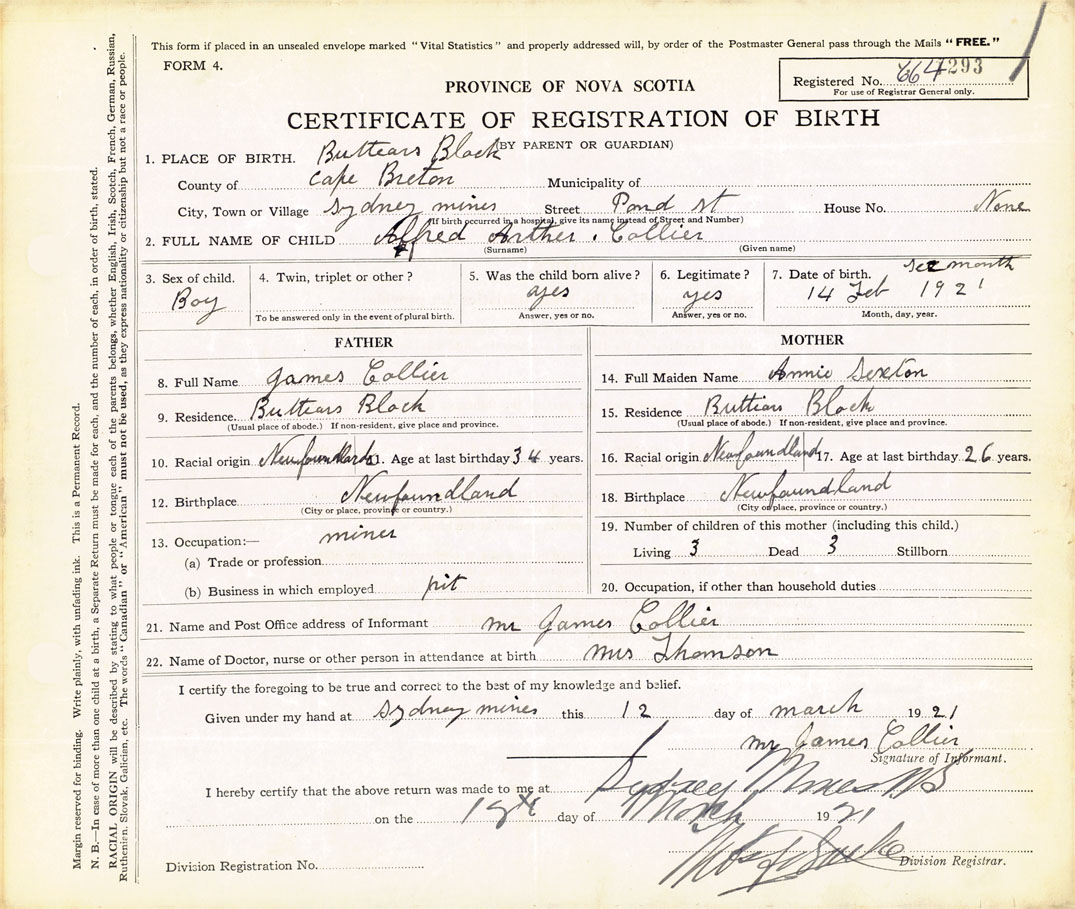 This form if placed in an unsealed envelope marked "Vital Statistics" and properly addressed will, by order of the Postmaster General pass through the Mails "FREE."
FORM 4.
Registered No. 664 293
For use of Registrar General only.
PROVINCE OF NOVA SCOTIA
CERTIFICATE OF REGISTRATION OF BIRTH
(BY PARENT OR GUARDIAN)
1. PLACE OF BIRTH. Buttears Block
County of Cape Breton Municipality of
City, Town or Village Sydney mines Street Pond st House No. None
(If birth occurred in a hospital, give its name instead of Street and Number)
2. FULL NAME OF CHILD Alfred Arther. Collier
(Surname) (Given name)
3. Sex of child. Boy
4. Twin, triplet or other?
To be answered only in the event of plural birth.
5. Was the child born alive? yes
Answer, yes or no.
6. Legitimate? yes
Answer, yes or no.
7. Date of birth. month
14 Feb 1921
Month, day, year.
FATHER
8. Full Name James Collier
9. Residence. Buttears Block
(Usual place of abode.) If non-resident, give place and province.
10. Racial origin Newfoundland 11. Age at last birthday 34 years.
12. Birthplace Newfoundland
(City or place, province or country.)
13. Occupation:— miner
(a) Trade or profession
(b) Business in which employed pit
MOTHER
14. Full Maiden Name Annie Sexton
15. Residence Buttiars Block
(Usual place of abode.) If non-resident, give place and province.
16. Racial origin Newfoundland 17. Age at last birthday 26 years.
18. Birthplace Newfoundland
(City or place, province or country.)
19. Number of children of this mother (including this child.)
Living 3 Dead 3 Stillborn
20. Occupation, if other than household duties
21. Name and Post Office address of Informant mr James Collier
22. Name of Doctor, nurse or other person in attendance at birth mrs Thomson
I certify the foregoing to be true and correct to the best of my knowledge and belief.
Given under my hand at Sydney mines this 12 day of march 1921
mr James Collier
Signature of Informant.
I hereby certify that the above return was made to me at Sydney Mines NS
on the day of March 1921
Division Registrar.
Division Registration No.
Margin reserved for binding. Write plainly, with unfading ink. This is a Permanent Record.
N. B.—In case of more than one child at a birth, a Separate Return must be made for each, and the number of each, in order of birth, stated.
RACIAL ORIGIN will be described by stating to what people or tongue each of the parents belongs, whether English, Irish, Scotch, French, German, Russian,
Ruthenian, Slovak, Galician, etc. The words "Canadian" or "American" must not be used, as they express nationality or citizenship but not a race or people.